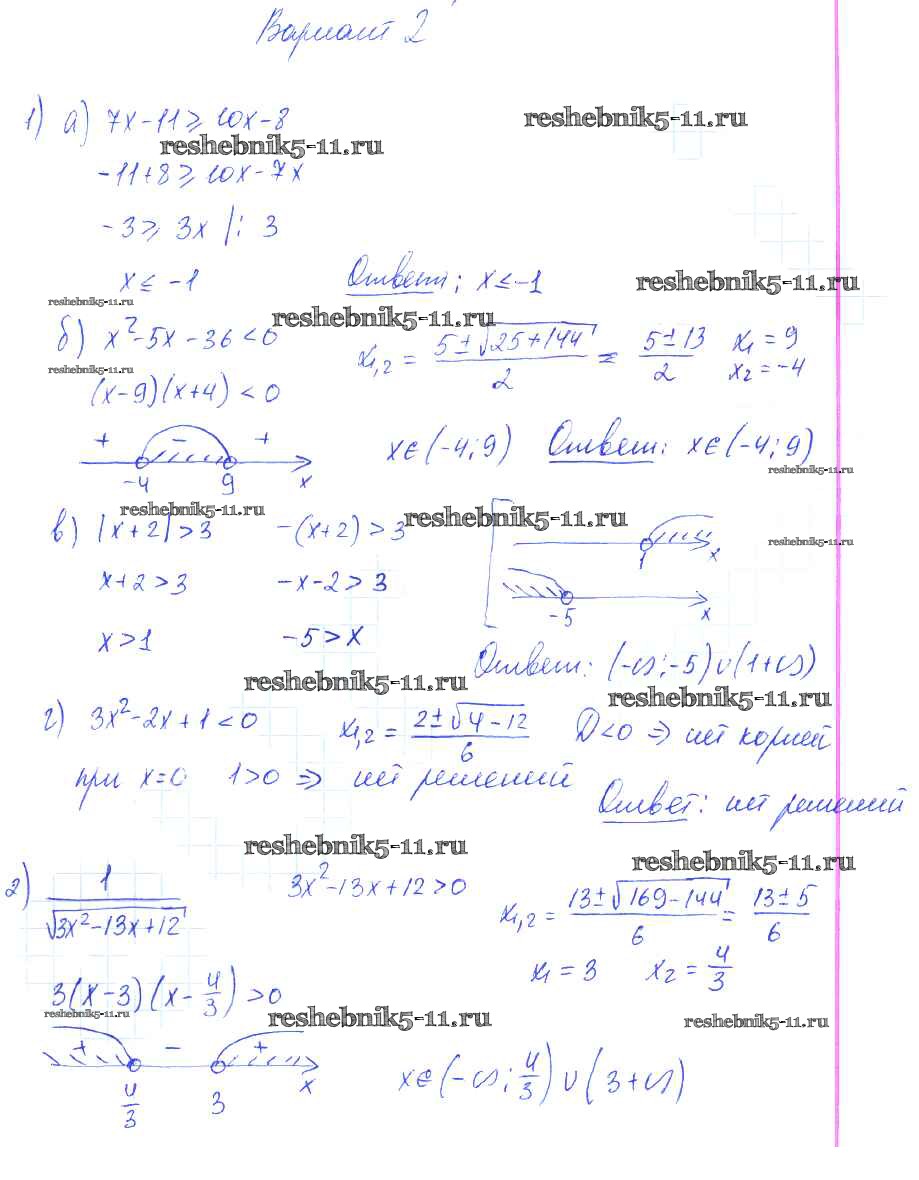 Вариант 2
1) а) 7x-11 ≥ 10x-8
reshebnik5-11.ru
reshebnik5-11.ru
-11+8 ≥ 10x-7x
-3 ≥ 3x |: 3
x ≤ -1 Ответ: x ≤ -1
reshebnik5-11.ru
reshebnik5-11.ru
reshebnik5-11.ru
б) x²-5x-36<0 x₁,₂ = (5±√(25+144))/2 = (5±13)/2 x₁=9 x₂=-4
reshebnik5-11.ru
(x-9)(x+4)<0
+ - +
-4 9 x
x∈(-4;9) Ответ: x∈(-4;9)
reshebnik5-11.ru
reshebnik5-11.ru
reshebnik5-11.ru
в) |x+2|>3 -(x+2)>3
reshebnik5-11.ru
1 x
x+2>3 -x-2>3
-5 x
x>1 -5>x
Ответ: (-∞;-5)∪(1+∞)
reshebnik5-11.ru
reshebnik5-11.ru
г) 3x²-2x+1<0 x₁,₂ = (2±√(4-12))/6 D<0 ⇒ нет корней
при x=0 1>0 ⇒ нет решений
Ответ: нет решений
reshebnik5-11.ru
reshebnik5-11.ru
2) 1/√(3x²-13x+12) 3x²-13x+12>0 x₁,₂ = (13±√(169-144))/6 = (13±5)/6
x₁=3 x₂=4/3
3(x-3)(x-4/3)>0
reshebnik5-11.ru
reshebnik5-11.ru
reshebnik5-11.ru
+ - +
4/3 3 x
x∈(-∞;4/3)∪(3+∞)